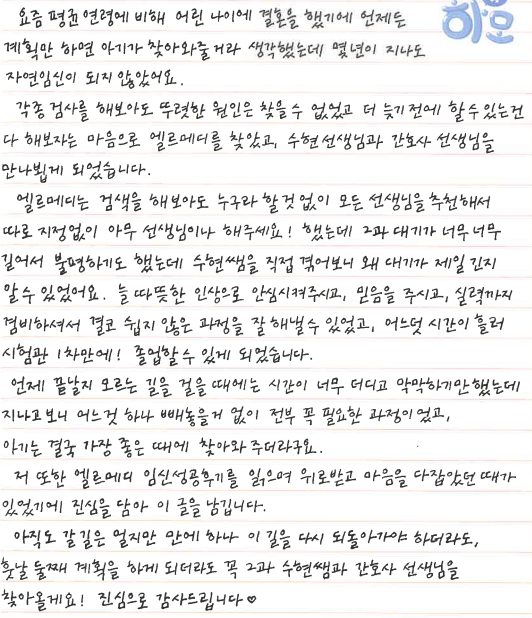 하모
요즘 평균 연령에 비해 어린 나이에 결혼을 했기에 언제든
계획만 하면 아기가 찾아와줄거라 생각했는데 몇년이 지나도
자연임신이 되지 않았어요.
각종 검사를 해보아도 뚜렷한 원인은 찾을수 없었고 더 늦기전에 할수있는건
다 해보자는 마음으로 엘르메디를 찾았고, 수현선생님과 간호사 선생님을
만나뵙게 되었습니다.
엘르메디는 검색을 해보아도 누구라 할것없이 모든 선생님을 추천해서
따로 지정없이 아무 선생님이나 해주세요! 했는데 2과 대기가 너무너무
길어서 불평하기도 했는데 수현쌤을 직접 겪어보니 왜 대기가 제일 긴지
알수 있었어요. 늘 따뜻한 인상으로 안심시켜주시고, 믿음을 주시고, 실력까지
겸비하셔서 결코 쉽지 않은 과정을 잘 해낼수 있었고, 어느덧 시간이 흘러
시험관 1차만에! 졸업할수 있게 되었습니다.
언제 끝날지 모르는 길을 걸을 때에는 시간이 너무 더디고 막막하기만했는데
지나고보니 어느것 하나 빼놓을거 없이 전부 꼭 필요한 과정이었고,
아기는 결국 가장 좋은 때에 찾아와 주더라구요.
저 또한 엘르메디 임신성공후기를 읽으며 위로받고 마음을 다잡았던 때가
있었기에 진심을 담아 이 글을 남깁니다.
아직도 갈길은 멀지만 만에 하나 이 길을 다시 되돌아가야 하더라도,
훗날 둘째 계획을 하게 되더라도 꼭 2과 수현쌤과 간호사 선생님을
찾아올게요! 진심으로 감사드립니다♡